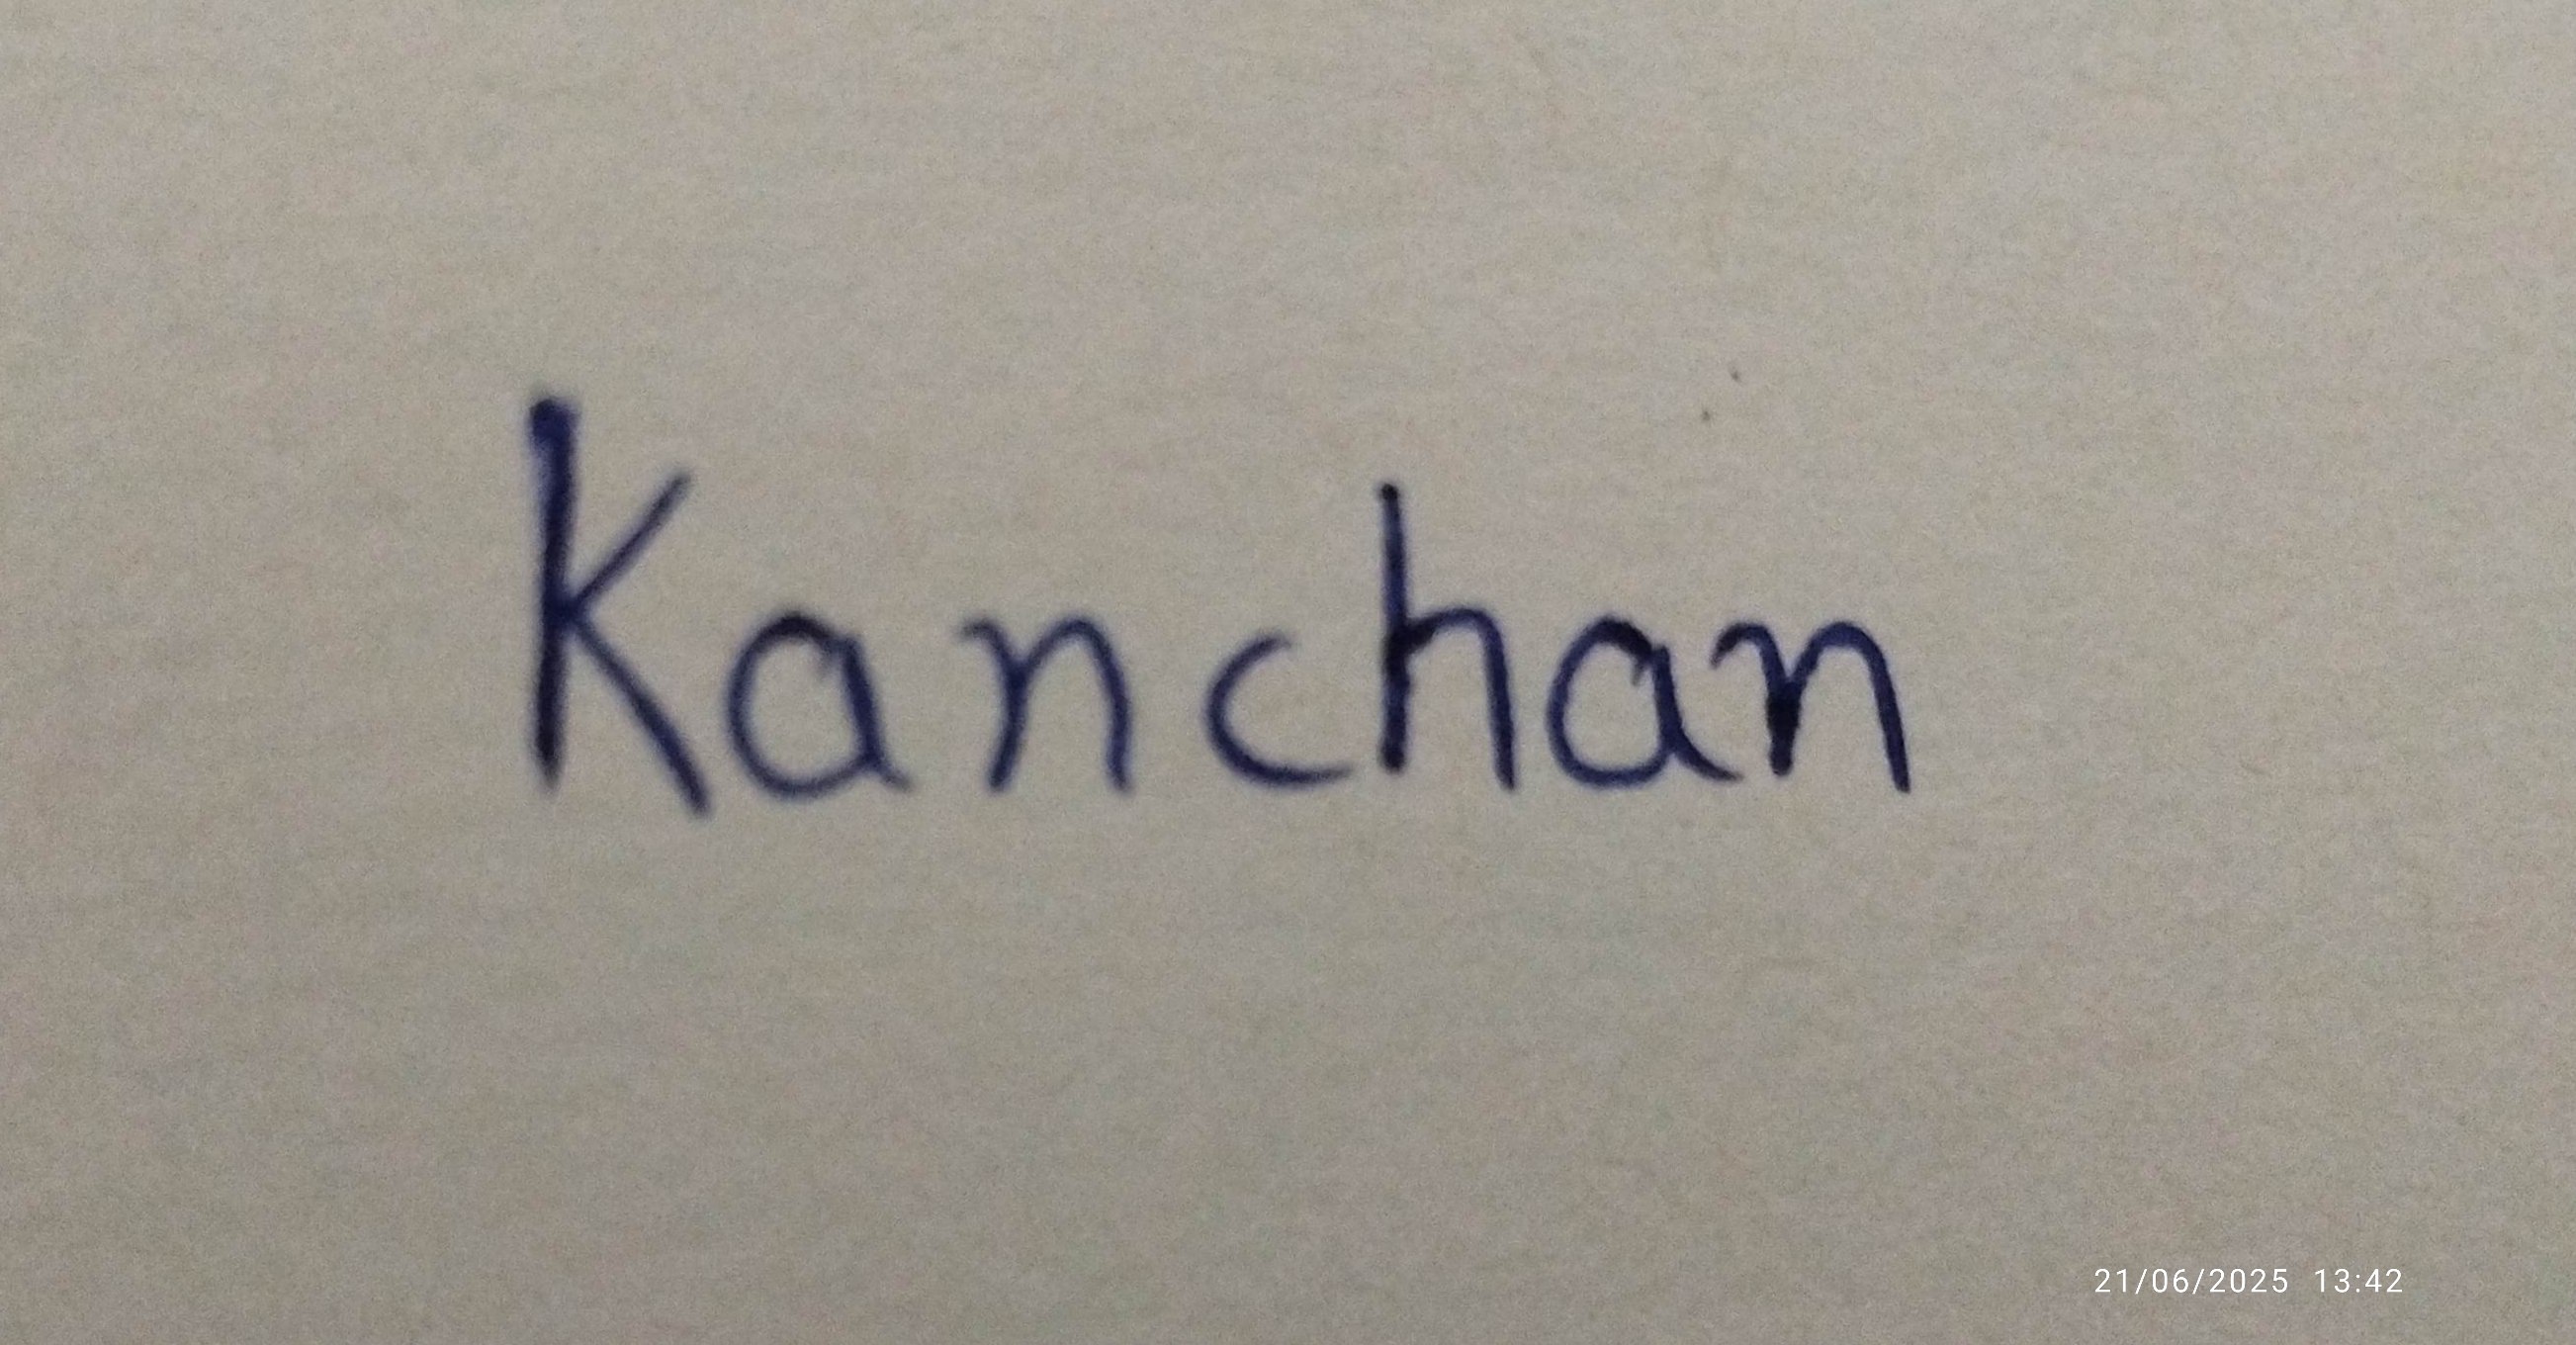 Kanchan
21/06/2025 13:42